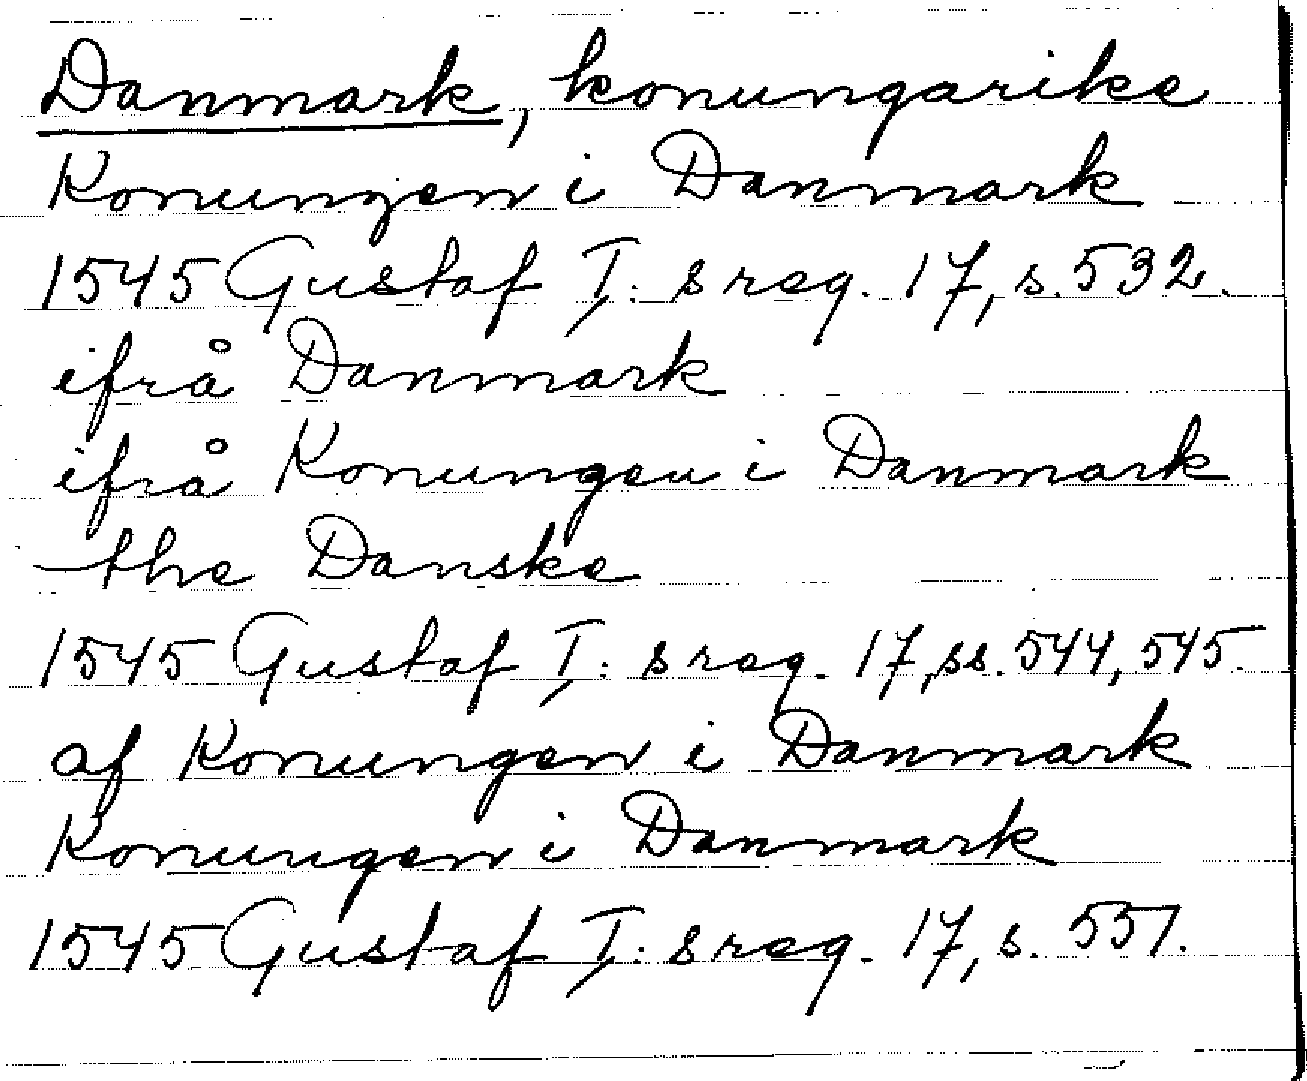 Danmark, konungarike
Konungen i Danmark
1545 Gustaf I:s reg. 17, s. 532.
ifrå Danmark
ifrå Konungen i Danmark
the Danske
1545 Gustaf I:s reg. 17, ss. 544, 545.
af Konungen i Danmark
Konungen i Danmark
1545 Gustaf I:s reg. 17, s. 551.